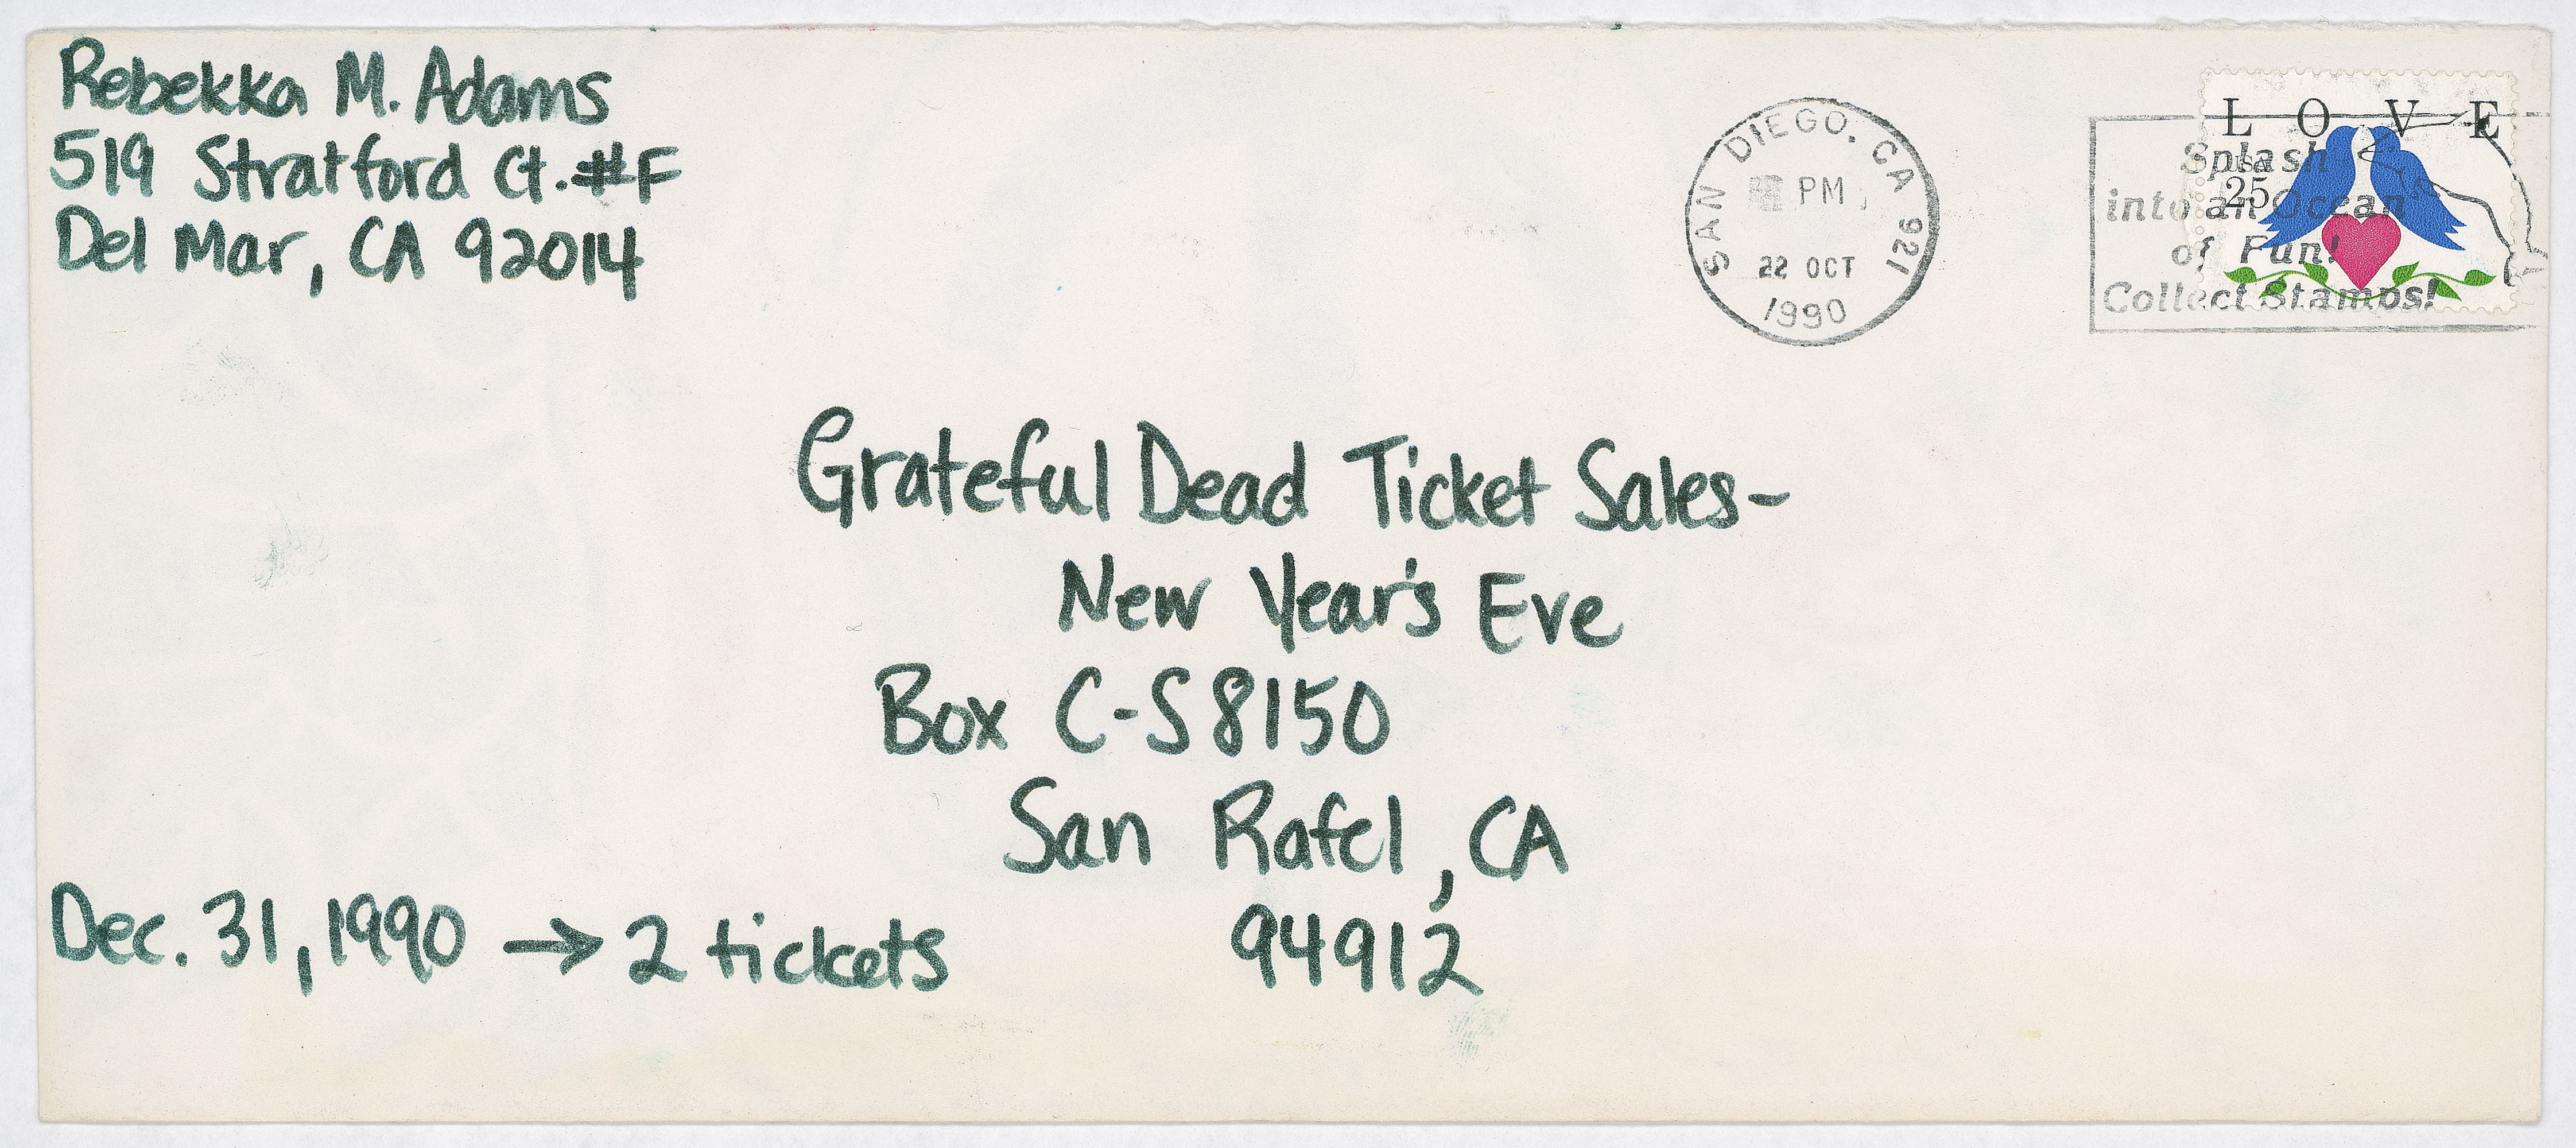 Rebekka M. Adams
519 Stratford Ct. #F
Del Mar, CA 92014
SAN DIEGO, CA 921
PM
22 OCT
1990
LOVE
USA
25
Splash
into an Ocean
of Fun!
Collect Stamps!
Grateful Dead Ticket Sales-
New Year's Eve
Box C-S8150
San Rafel, CA
94912
Dec. 31, 1990 → 2 tickets